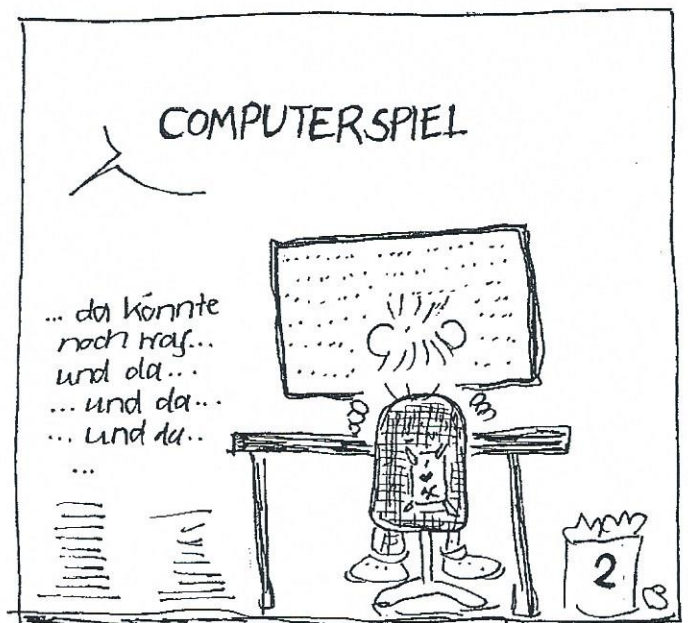 COMPUTERSPIEL
... da könnte
noch was...
und da...
... und da...
... und da..
...
2